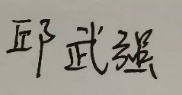 邱武强